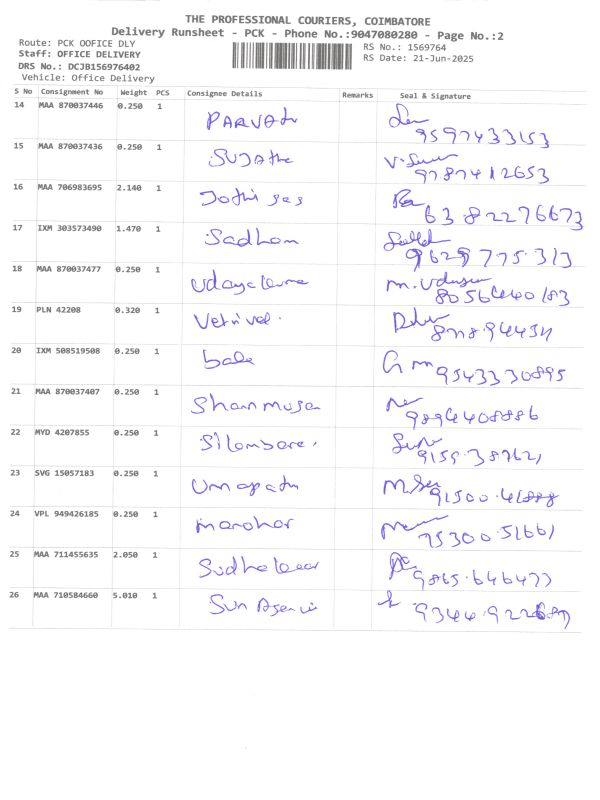 THE PROFESSIONAL COURIERS, COIMBATORE
Delivery Runsheet - PCK - Phone No.:9047080280 - Page No.:2
Route: PCK OOFICE DLY
RS No.: 1569764
Staff: OFFICE DELIVERY
RS Date: 21-Jun-2025
DRS No.: DCJB156976402
Vehicle: Office Delivery
S No Consignment No Weight PCS Consignee Details Remarks Seal & Signature
14 MAA 870037446 0.250 1
9597433153
15 MAA 870037436 0.250 1 SUJAthe
9787412653
16 MAA 706983695 2.140 1
63 82276673
17 IXM 303573490 1.470 1 Sadham
9629775.313
18 MAA 870037477 0.250 1
8056440183
19 PLN 42208 0.320 1 Vetrivel.
20 IXM 508519508 0.250 1 bala
9543330895
21 MAA 870037407 0.250 1 Shanmuga
9894408886
22 MYD 4207855 0.250 1
23 SVG 15057183 0.250 1
24 VPL 949426185 0.250 1 manohar
75300.51661
25 MAA 711455635 2.050 1
9865.646477
26 MAA 710584660 5.010 1